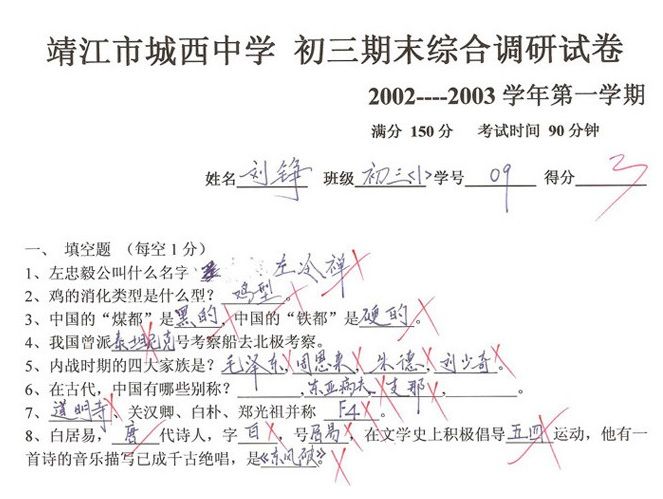 靖江市城西中学 初三期末综合调研试卷
2002----2003 学年第一学期
满分 150 分 考试时间 90 分钟
姓名 刘铮 班级 初三<1> 学号 09 得分 3
一、 填空题 （每空 1 分）
1、左忠毅公叫什么名字 左冷禅
2、鸡的消化类型是什么型？ 鸡型 。
3、中国的“煤都”是黑的，中国的“铁都”是硬的。
4、我国曾派泰坦尼克号考察船去北极考察。
5、内战时期的四大家族是？毛泽东，周恩来，朱德，刘少奇。
6、在古代，中国有哪些别称？ ，东亚病夫，支那， 。
7、道明寺、关汉卿、白朴、郑光祖并称 F4 。
8、白居易，唐代诗人，字 白 ，号居易，在文学史上积极倡导五四运动，他有一
首诗的音乐描写已成千古绝唱，是《东风破》。